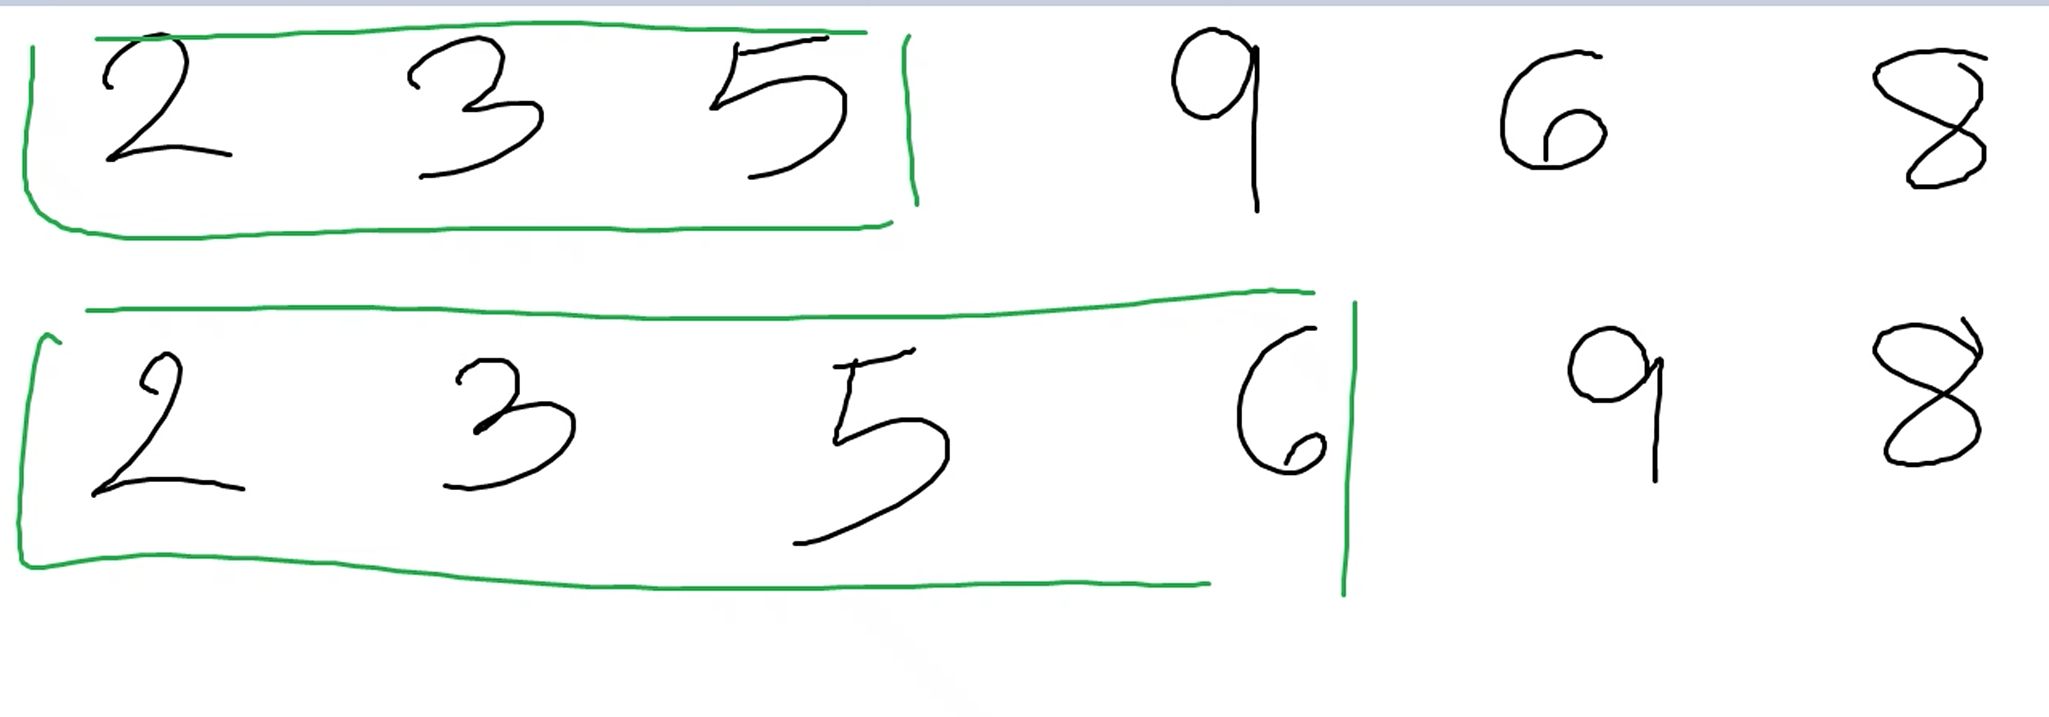 2 3 5 9 6 8
2 3 5 6 9 8